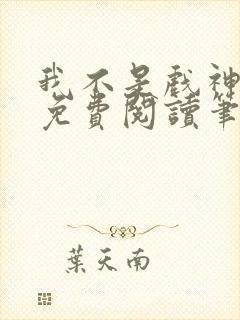 我不是戲神
免費閱讀筆
葉天南